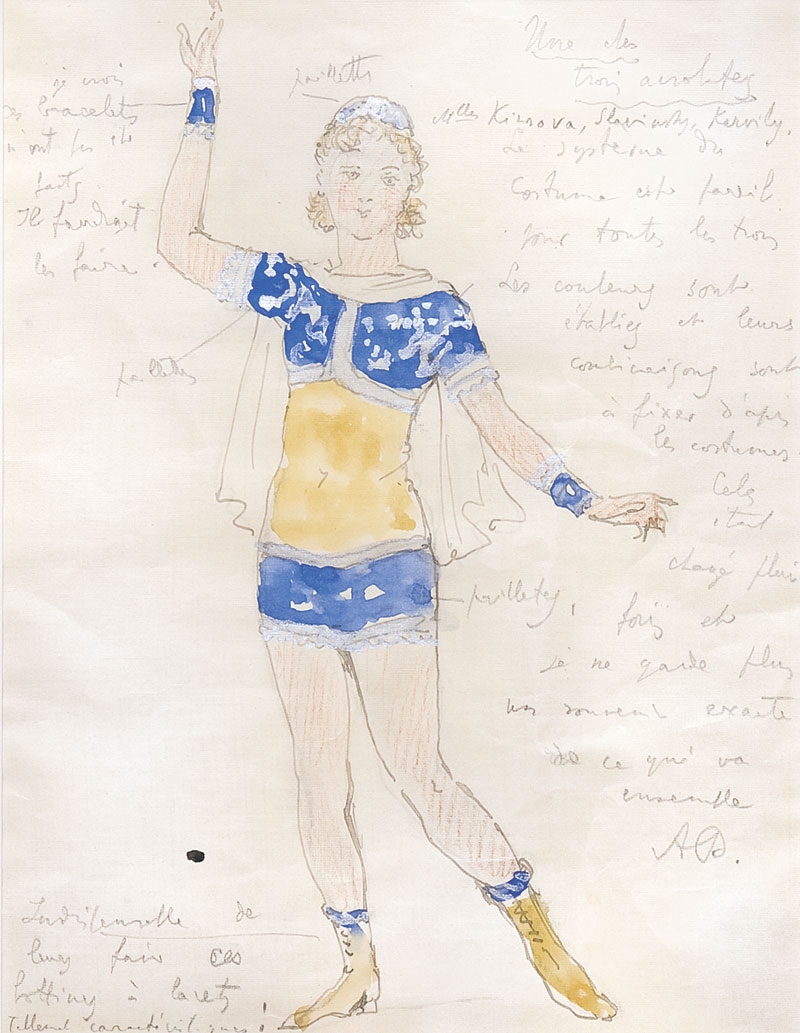 Une des
trois acrobates
paillettes
Mlles Kirsova, Slavinsky, Kervily,
Le système du
costume est pareil
pour toutes les trois
Les couleurs sont
établies et leurs
combinaisons sont
à fixer d'après
les costumes.
Cela
étant
changé plusi
fois et
je ne garde plus
un souvenir exacte
de ce qui va
ensemble
AB.
je crois
ces bracelets
n'ont pas été
faits.
Il faudrait
les faire.
paillettes
paillettes,
Indispensable de
leur faire ces
bottines à lacets
Tellement caractéristiques!